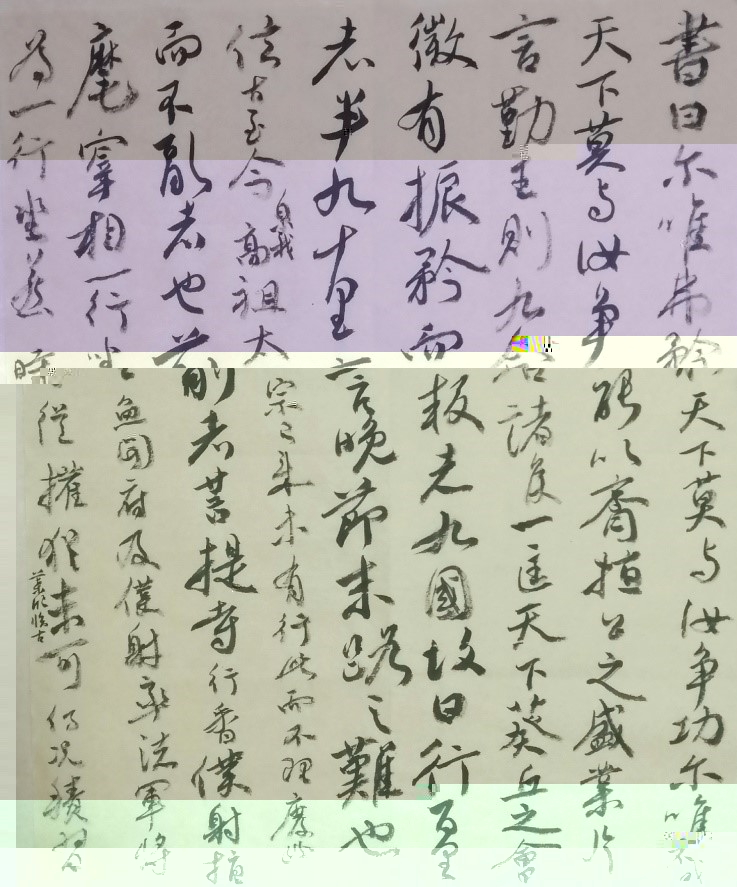 書曰尔唯弗矜天下莫与汝争功尔唯不伐
天下莫与汝争能以齊桓公之盛業片
言勤王則九合諸侯一匡天下葵丘之會
微有振矜而叛者九國故曰行百里
者半九十里言晚節末路之難也
從古至今我高祖太宗已来未有行此而不理廢此
而不亂者也前者菩提寺行香僕射指
麾宰相一行坐魚開府及僕射率諸軍將
為一行坐若時從權猶未可何況積習
臨古